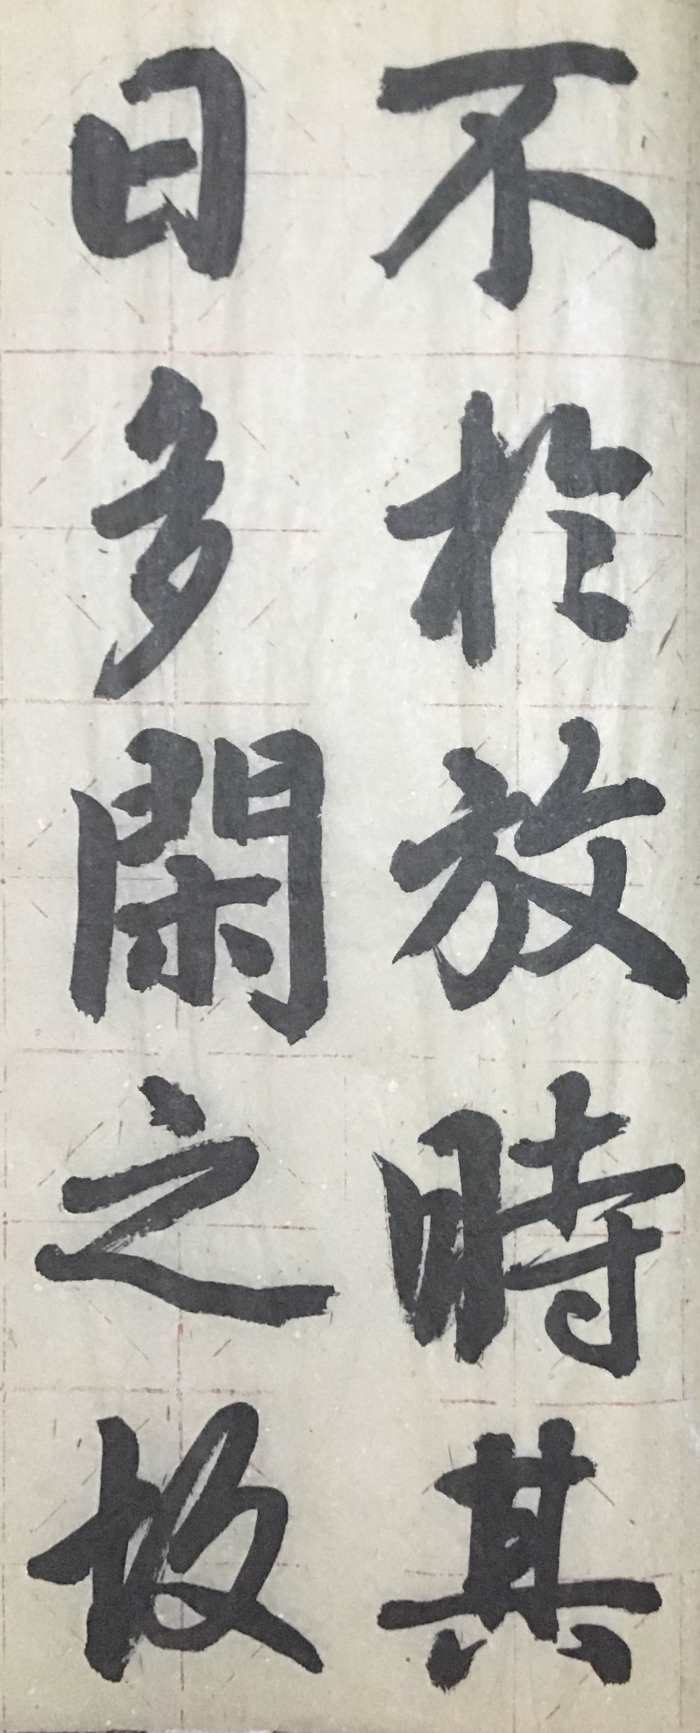 不於放時其
日多閑之故